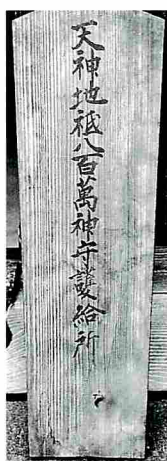 天神地祇八百萬神守護給所